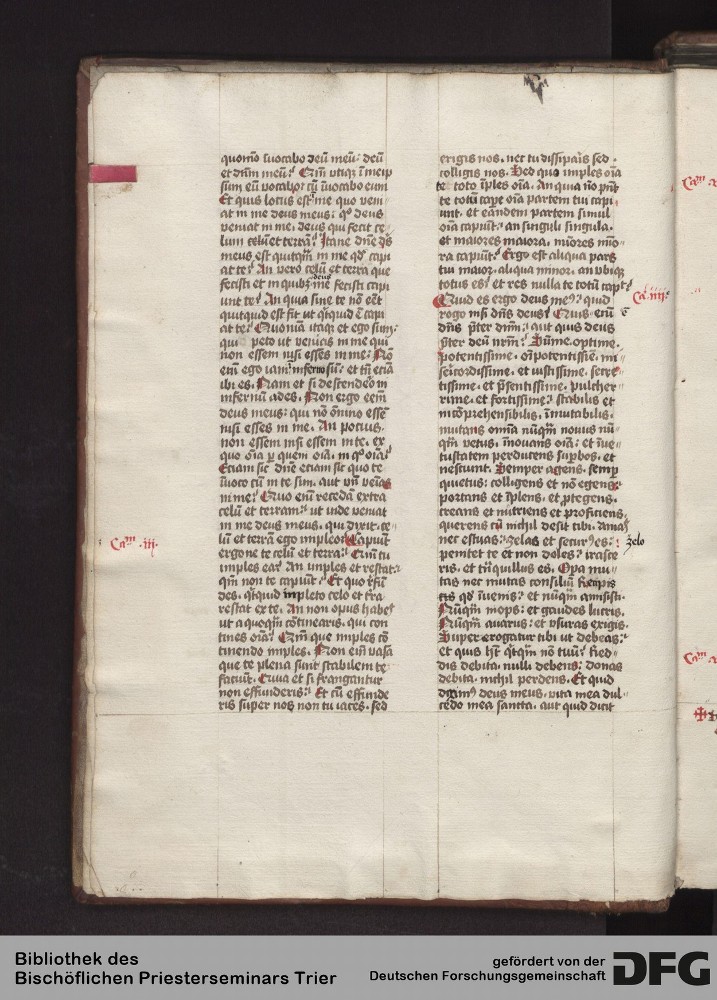 quomo inuocabo deu meu: deu
et dnm meu? Qm vtiq; i meip
sum eu vocabo? cu inuocabo eum
Et quis locus est i me quo veni
at in me deus meus: q° deus
veniat in me. deus qui fecit ce
lum celu et terra? Itane dne ds
meus est quitqm in me qd capi
at te? An vero celu et terra que
deus
fecisti et in quibz me fecisti capi
unt te? An quia sine te no eet
quitquid est fit ut qtquid e capi
at te? Quonia itaq; et ego sum:
qui peto ut venias in me qui
non essem nisi esses in me: No
em ego iam inferno su: et tn etia
ibi es. Nam et si descendeo in
infernu ades. Non ergo eem
deus meus: qui no onino esse
nisi esses in me. An potius
non essem nisi essem in te. ex
quo oia p quem oia. in q° oia?
Eciam sic dne eciam sic quo te
iuoco cu in te sim. aut vn venias
in me? Quo eni recedā extra
celu et terram: ut inde veniat
in me deus meus. qui dixit. ce
lu et terra ego impleo? Capiut
Cam .iij.
ergone te celu et terra? Qm tu
imples ea? An imples et restat:
qm non te capiut? Et quo rfu
des. qtquid impleto celo et tra
restat ex te. An non opus habes
ut a quoqm cotinearis. qui con
tines oia? Qm que imples co
tinendo imples. Non em vasa
que te plena sunt stabilem te
faciut. Quia et si frangantur
non effunderis: Et cu effunde
ris super nos non tu iaces. sed
erigis nos. nec tu dissiparis sed
colligis nos. Sed qui imples oia
te toto iples oia. An quia no pnt
te totu cape oia partem tui capi
unt. et eandem partem simul
oia capiut? an singuli singula.
et maiores maiora. miores mio
ra capiut? Ergo est aliqua pars
tui maior. aliqua minor. an vbiq;
totus es? et res nulla te totu capit?
Quid es ergo deus me9? quid
Ca. iiij.
rogo nisi dns deus? Quis enī e
dns pter dnm? aut quis deus
pter deu nrm? Sume. optime.
potentissime. oipotentissie. mi
sericordissime. et iustissime. secre
tissime. et psentissime. pulcher
rime. et fortissime: stabilis et
incoprehensibilis. imutabilis.
mutans omia nuqm nouus nu
qm vetus. inouans oia: et i ue
tustatem perducens supbos. et
nesciunt. Semper agens. semp
quietus: colligens et no egens:
portans et iplens. et ptegens.
creans et nutriens et proficiens.
querens cu nichil desit tibi. Amas
nec estuas: zelas et securus es:
zelo
penitet te et non doles: irasce
ris. et tnquillus es. Opa mu
tas nec mutas consiliu Recipis
qd iuenis: et nuqm amisisti.
Nuqm inops: et gaudes lucris.
Nuqm auarus: et vsuras exigis.
Superrogatur tibi ut debeas:
et quis hst qtqm no tuu? Red
dis debita. nulli debens: donas
debita. nichil perdens. Et quid
dixim9 deus meus. vita mea dul
cedo mea sancta. aut quid dicit
Bibliothek des
Bischöflichen Priesterseminars Trier
gefördert von der
Deutschen Forschungsgemeinschaft
DFG